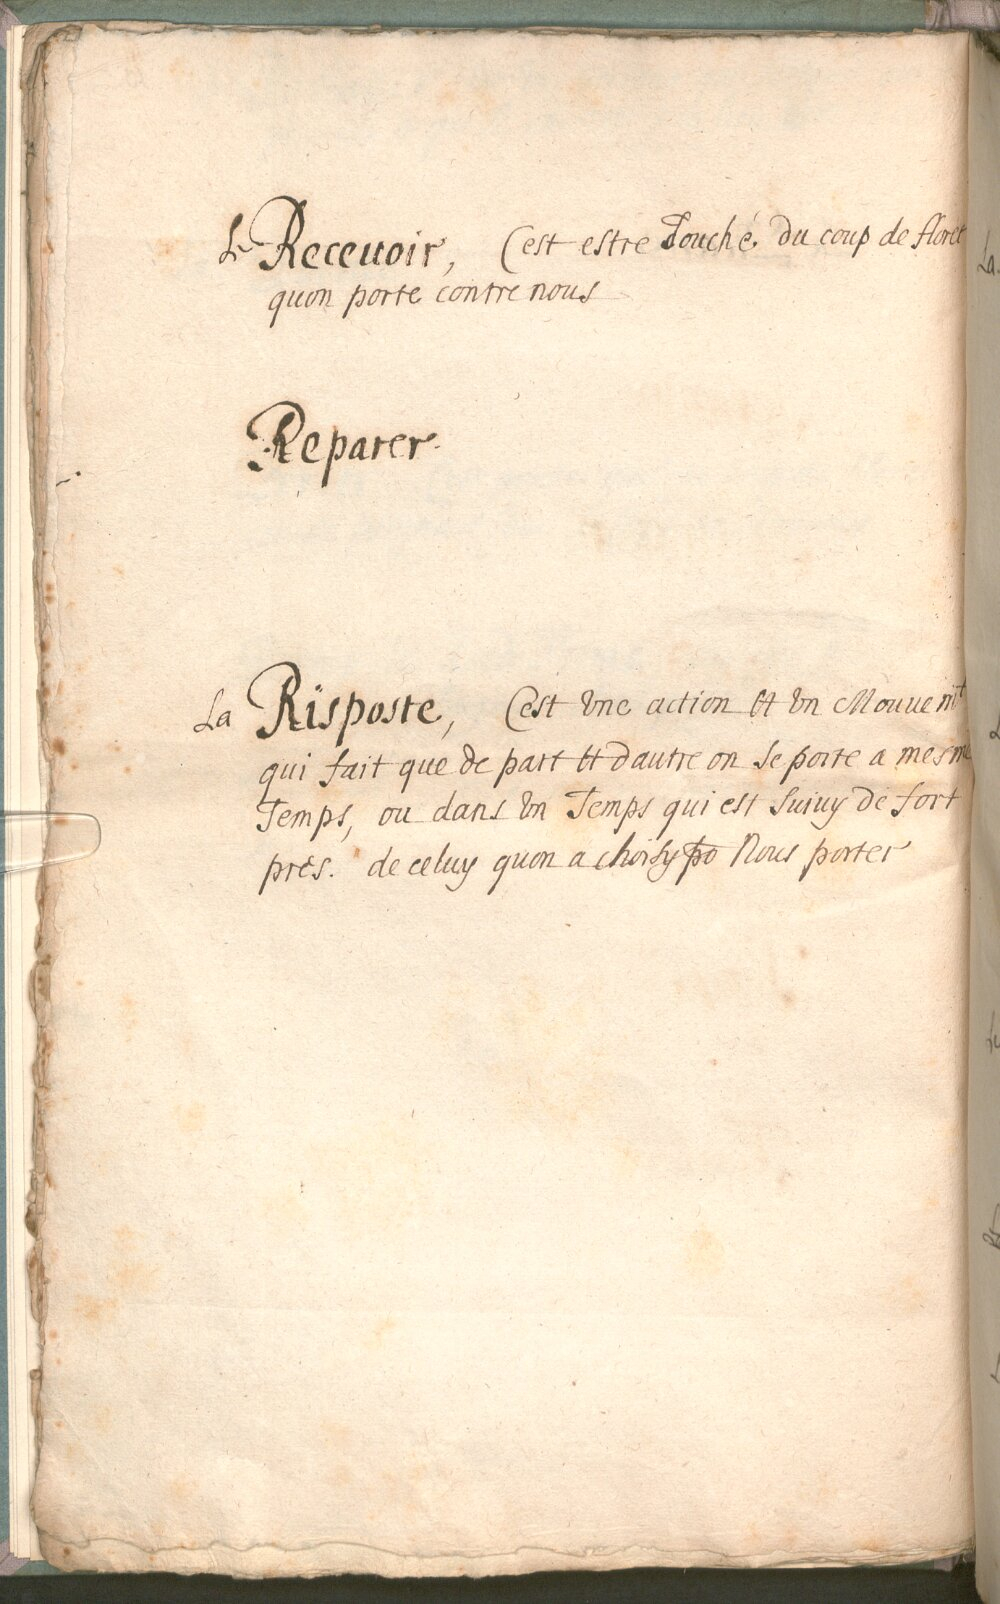 Le Receuoir, C'est estre Touché. du coup de floret
quon porte contre nous
Reparer.
La Risposte, C'est vne action et vn Mouuem.t
qui fait que de part et dautre on se porte a mesme
Temps, ou dans vn Temps qui est suiuy de fort
prés. de celuy quon a choisy po Nous porter